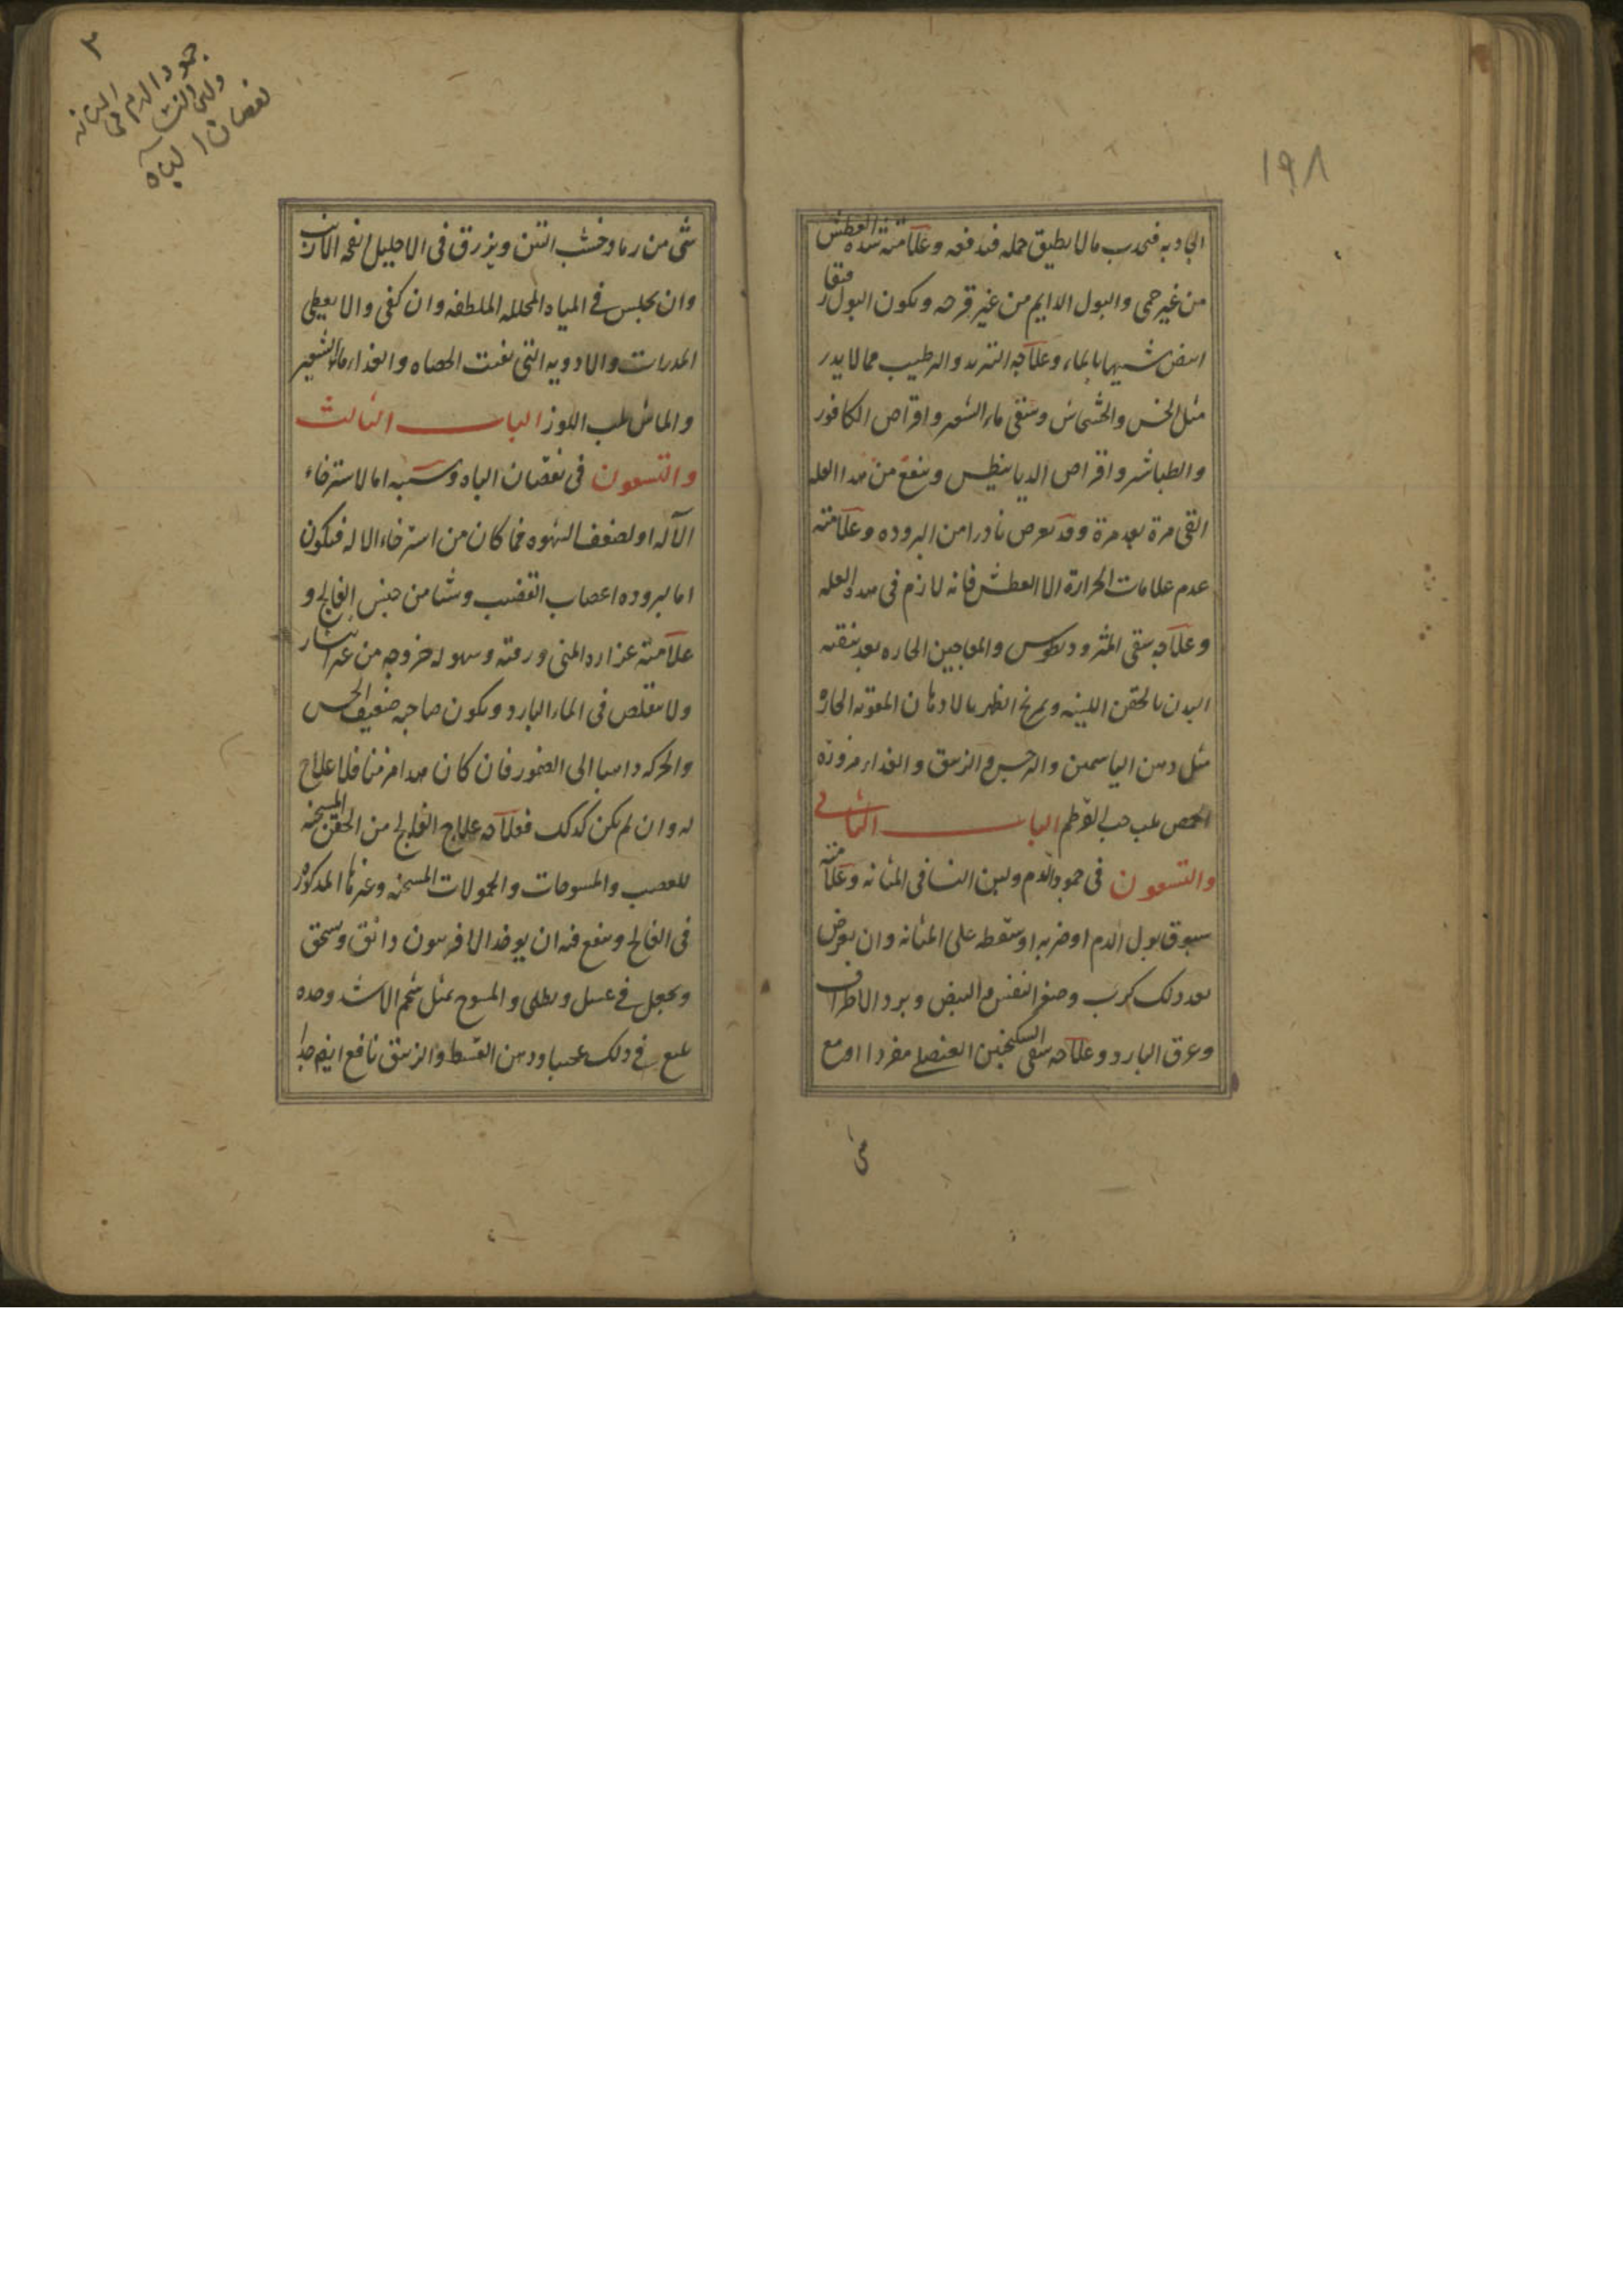 ١٩٨
الجاذبه فيجذب ما لا يطيق حمله فيدفعه وعلامته شده العطش
من غير حمى والبول الدايم من غير قرحه ويكون البول رقيقا
ابيض شبيها بالماء وعلاجه التبريد والترطيب مما لا يدر
مثل الخس والخشخاش وسقى ماء الشعير واقراص الكافور
والطباشير واقراص الديابيطس وينفع من هذا العله
القى مرة بعد مرة وقد يعرض نادرا من البروده وعلامته
عدم علامات الحرارة الا العطش فانه لازم فى هذه العله
وعلاجه سقى المثروديطوس والمعاجين الحاره بعد تنقيه
البدن بالحقن اللينه وتمريخ الظهر بالادهان المقويه الحاره
مثل دهن الياسمين والنرجس والزنبق والغذاء مزوره
الحمص بلب حب القرطم الباب الثانى
والتسعون فى جمود الدم ولبن النسا فى المثانه وعلامته
سبوق بول الدم او ضربه او سقطه على المثانه وان يعرض
بعد ذلك كرب وصغر النفس والنبض وبرد الاطراف
وعرق البارد وعلاجه سقى السكنجبين العنصلى مفردا او مع
شى
٣
جمود الدم فى المثانه
ولبن النسا
نقصان الباه
شى من رماد خشب التين ويزرق فى الاحليل انفحه الارنب
وان يجلس فى المياه المحلله الملطفه وان كفى والا يعطى
المدرات والادويه التى تفتت الحصاه والغذاء ماء الشعير
والماش بلب اللوز الباب الثالث
والتسعون فى نقصان الباه وسببه اما لاسترخاء
الآله او لضعف الشهوه فما كان من استرخاء الاله فيكون
اما لبروده اعصاب القضيب وشيا من جنس الفالج و
علامته غزاره المنى ورقته وسهوله خروجه من غير انتشار
ولا يتقلص فى الماء البارد ويكون صاحبه ضعيف الحس
والحركه ذاهبا الى الضمور فان كان هذا مزمنا فلا علاج
له وان لم يكن كذلك فعلاجه علاج الفالج من الحقن المسخنه
للعصب والمسوحات والحمولات المسخنه وغيرها المذكوره
فى الفالج وينفع فيه ان يوخذ الافربيون دانق وسحق
ويجعل فى عسل ويطلى والمسوح بمثل شحم الاسد وحده
بليغ فى ذلك عجيبا ودهن القسط والزنبق نافع ايضا جدا